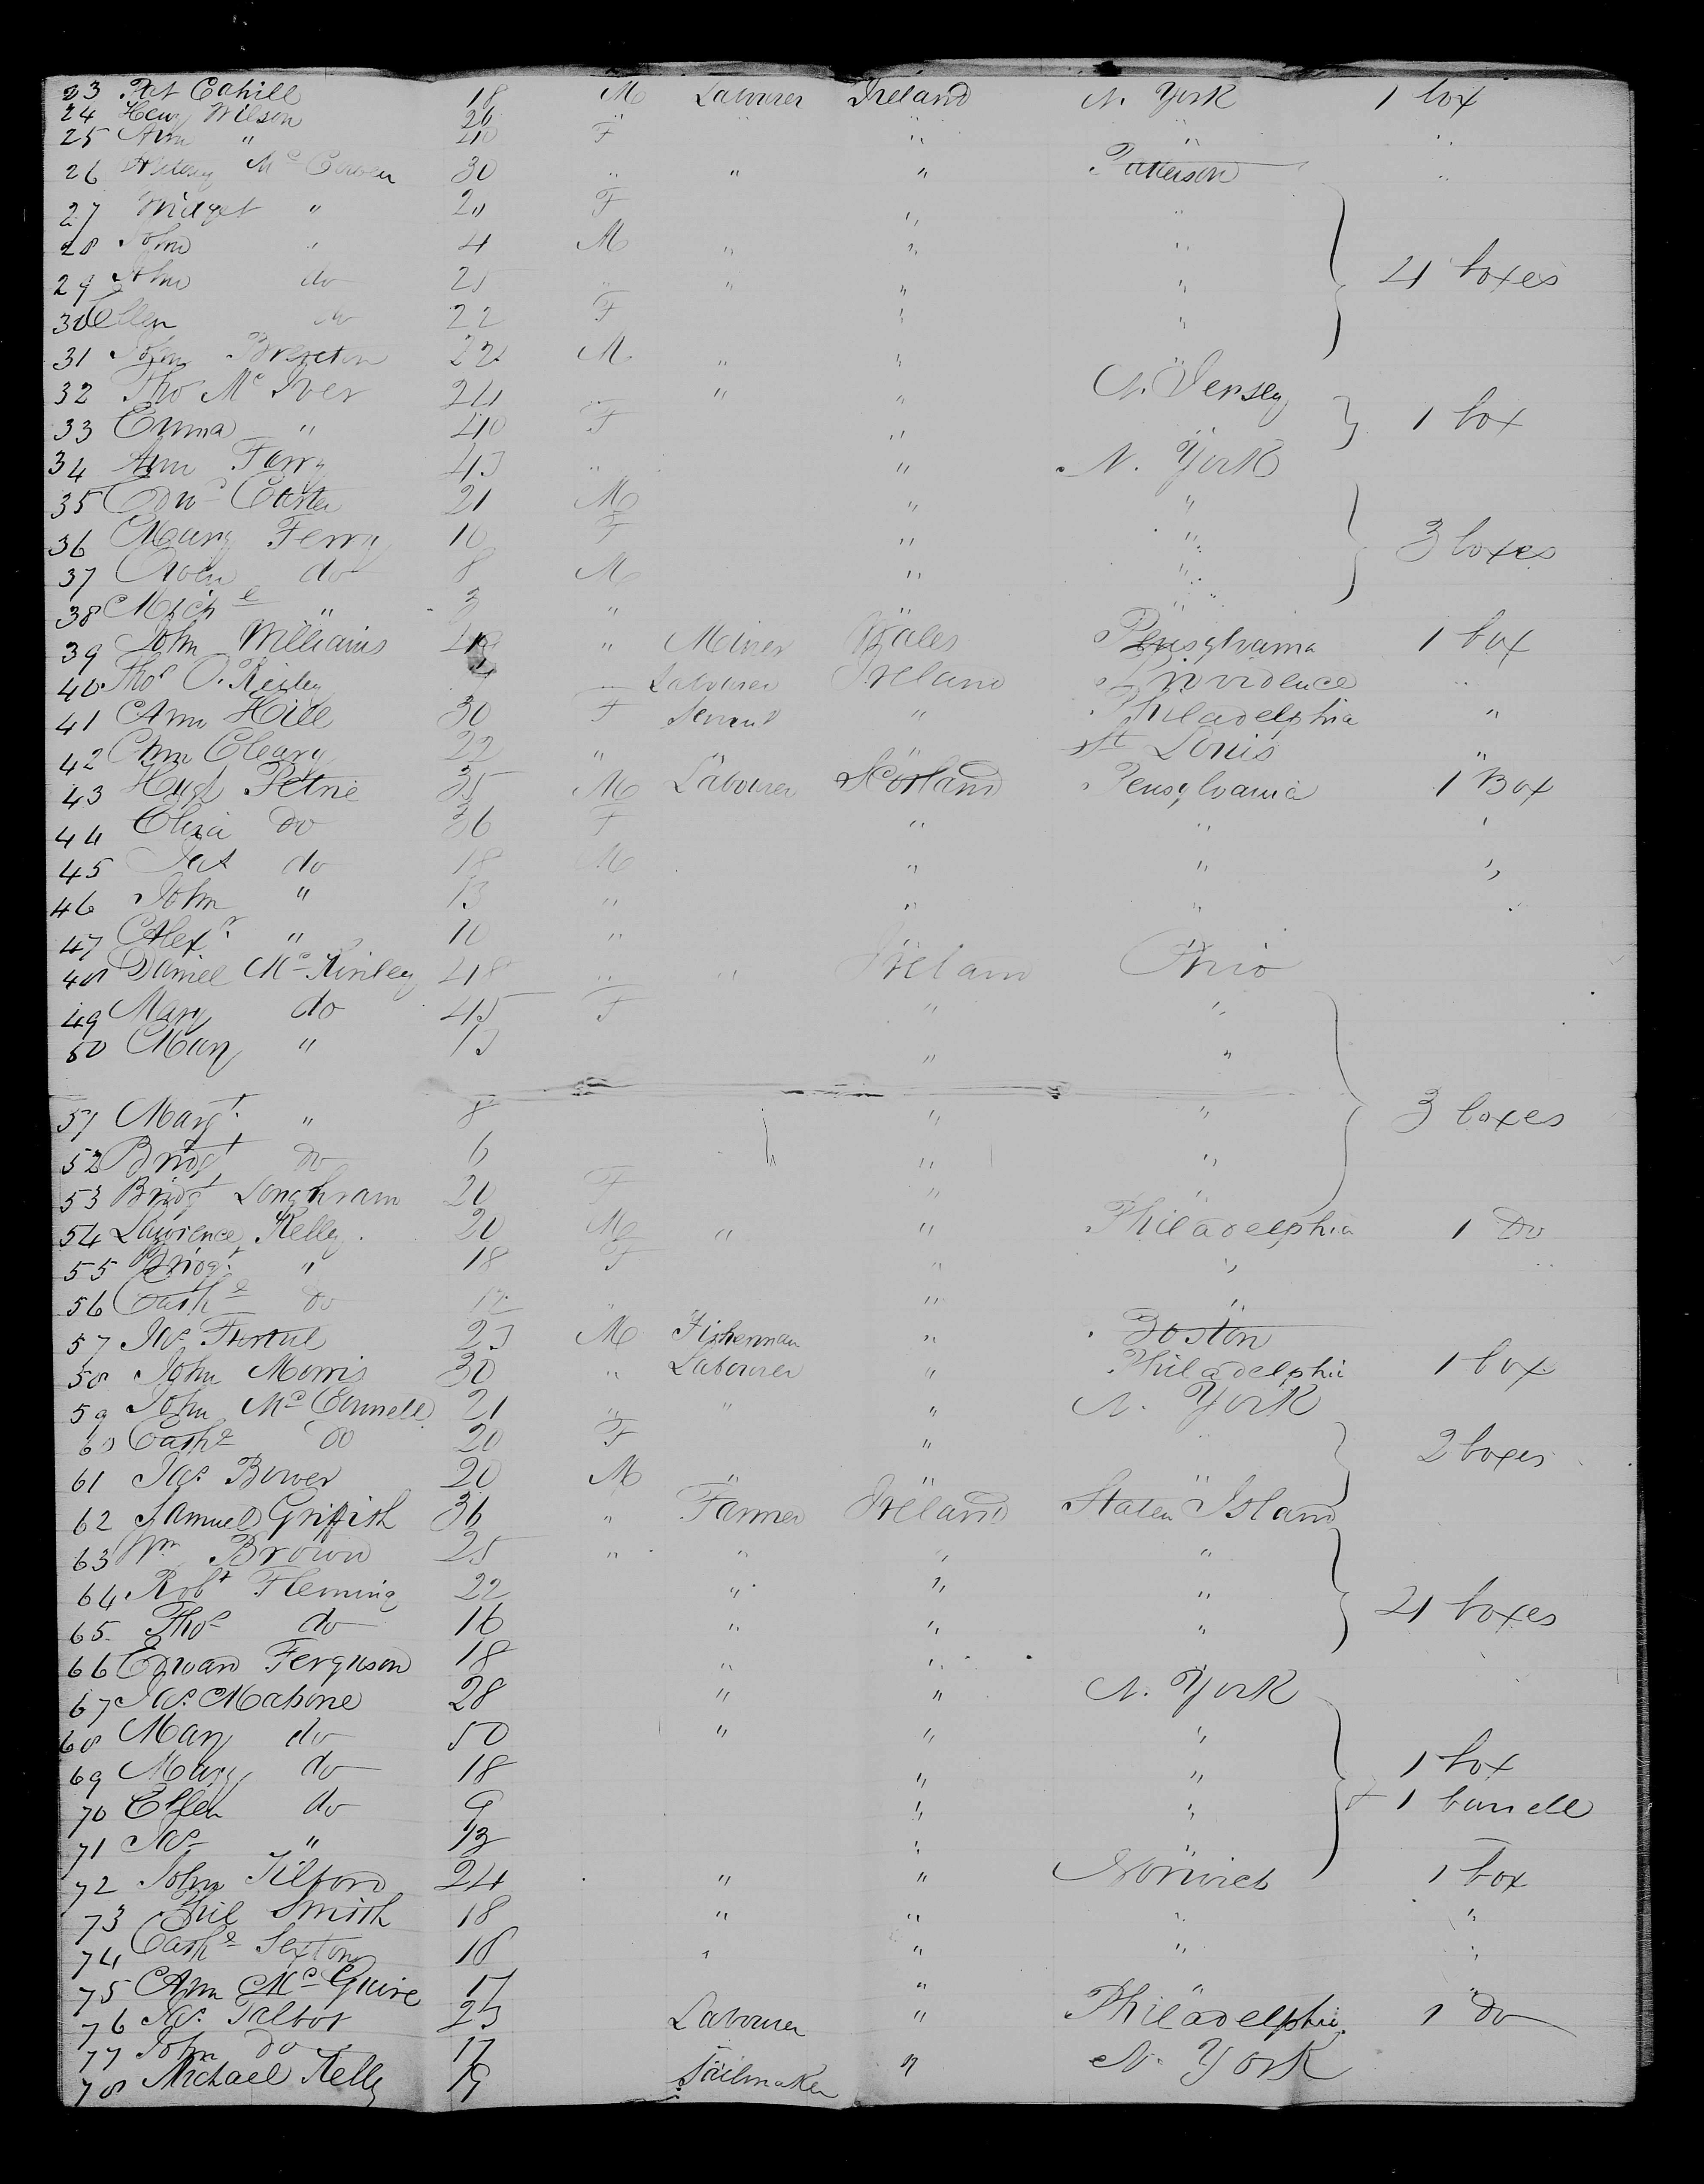 23 Pat Cahill 18 M Labourer Ireland N. York 1 box
24 Heny Wilson 26 " " " " "
25 Ann " 40 F " " "
26 McCowen 30 " " " Patterson "
27 Bridget " 20 F " "
28 John " 4 M " " "
29 John do 25 " " " " 4 boxes
30 Ellen do 22 F " "
31 John Brereton 22 M " " "
32 Tho Mc Iver 24 " " " N. Jersey
33 Emma " 40 F " " 1 box
34 Ann Farry 45 " " N. York
35 Edwd Carter 21 M " "
36 Mary Ferry 10 F " " 3 boxes
37 Owen do 8 M " "
38 Michl " 3 " " "
39 John Williams " Miner Wales Pensylvania 1 box
40 Thos O. Reiley " Labourer Ireland Providence "
41 Ann Hill 30 F Servant " Philadelphia "
42 Ann Cleary 22 " " " St Louis "
43 Hugh Petrie 35 M Labourer Scotland Pensylvania 1 Box
44 Eliza do 36 F " " "
45 Pat do 18 M " " "
46 John " 13 " " "
47 Alexr. " 10 " " "
48 Daniel McKinley 48 " " Ireland Ohio
49 Mary do 45 F " "
50 Mary " 15 " "
51 Margt. " 8 " " 3 boxes
52 Bridgt do 6 " "
53 Bridgt Longhram 20 F " "
54 Lawrence Kelly. 20 M " " Philadelphia 1 Do
55 Bridgt. " 18 F " " "
56 Cathe do 12 " " "
57 Jas. 25 M Fisherman " Boston
58 John Morris 30 " Labourer " Philadelphia 1 box
59 John McConnell 21 " " " N. York
60 Cathe do 20 F " " 2 boxes
61 Jas. Bower 20 M " " "
62 Samuel Griffith 36 " Farmer Ireland Staten Island
63 Wm Brown 25 " " " "
64 Robt Fleming 22 " " "
65 Thos do 16 " " " 4 boxes
66 Edward Ferguson 18 " " "
67 Jas. Mahone 28 " " N. York
68 Mary do 50 " " "
69 Mary do 18 " " 1 box
70 Ellen do 9 " " & 1 barrell
71 Jas " 13 " "
72 John Tilford 24 " " Norwich 1 box
73 Phil Smith 18 " " " "
74 Cathe Sexton 18 " " " "
75 Ann McGuire 17 " " "
76 Jas. Talbot 25 Labourer " Philadelphia 1 do
77 John do 17 " N. York
78 Michael Kelly 19 Sailmaker "